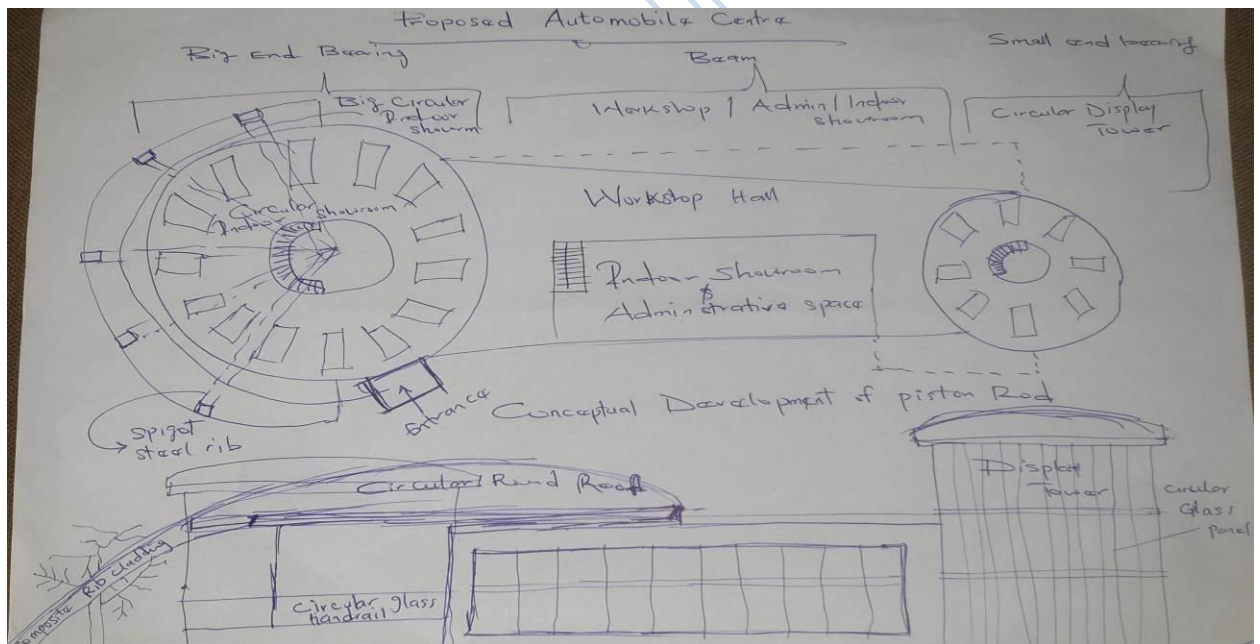 Proposed Automobile Centre
Big End Bearing
Beam
Small end bearing
Big Circular
Indoor
showrm
Workshop / Admin / Indoor
showroom
Circular Display
Tower
Circular
Indoor showroom
Workshop Hall
Indoor showroom
&
Administrative space
Entrance
spigot
steel rib
Conceptual Development of piston Rod
Circular Rund Roof
Display
Tower
circular
Glass
panel
Composite Rib cladding
Circular glass
handrail